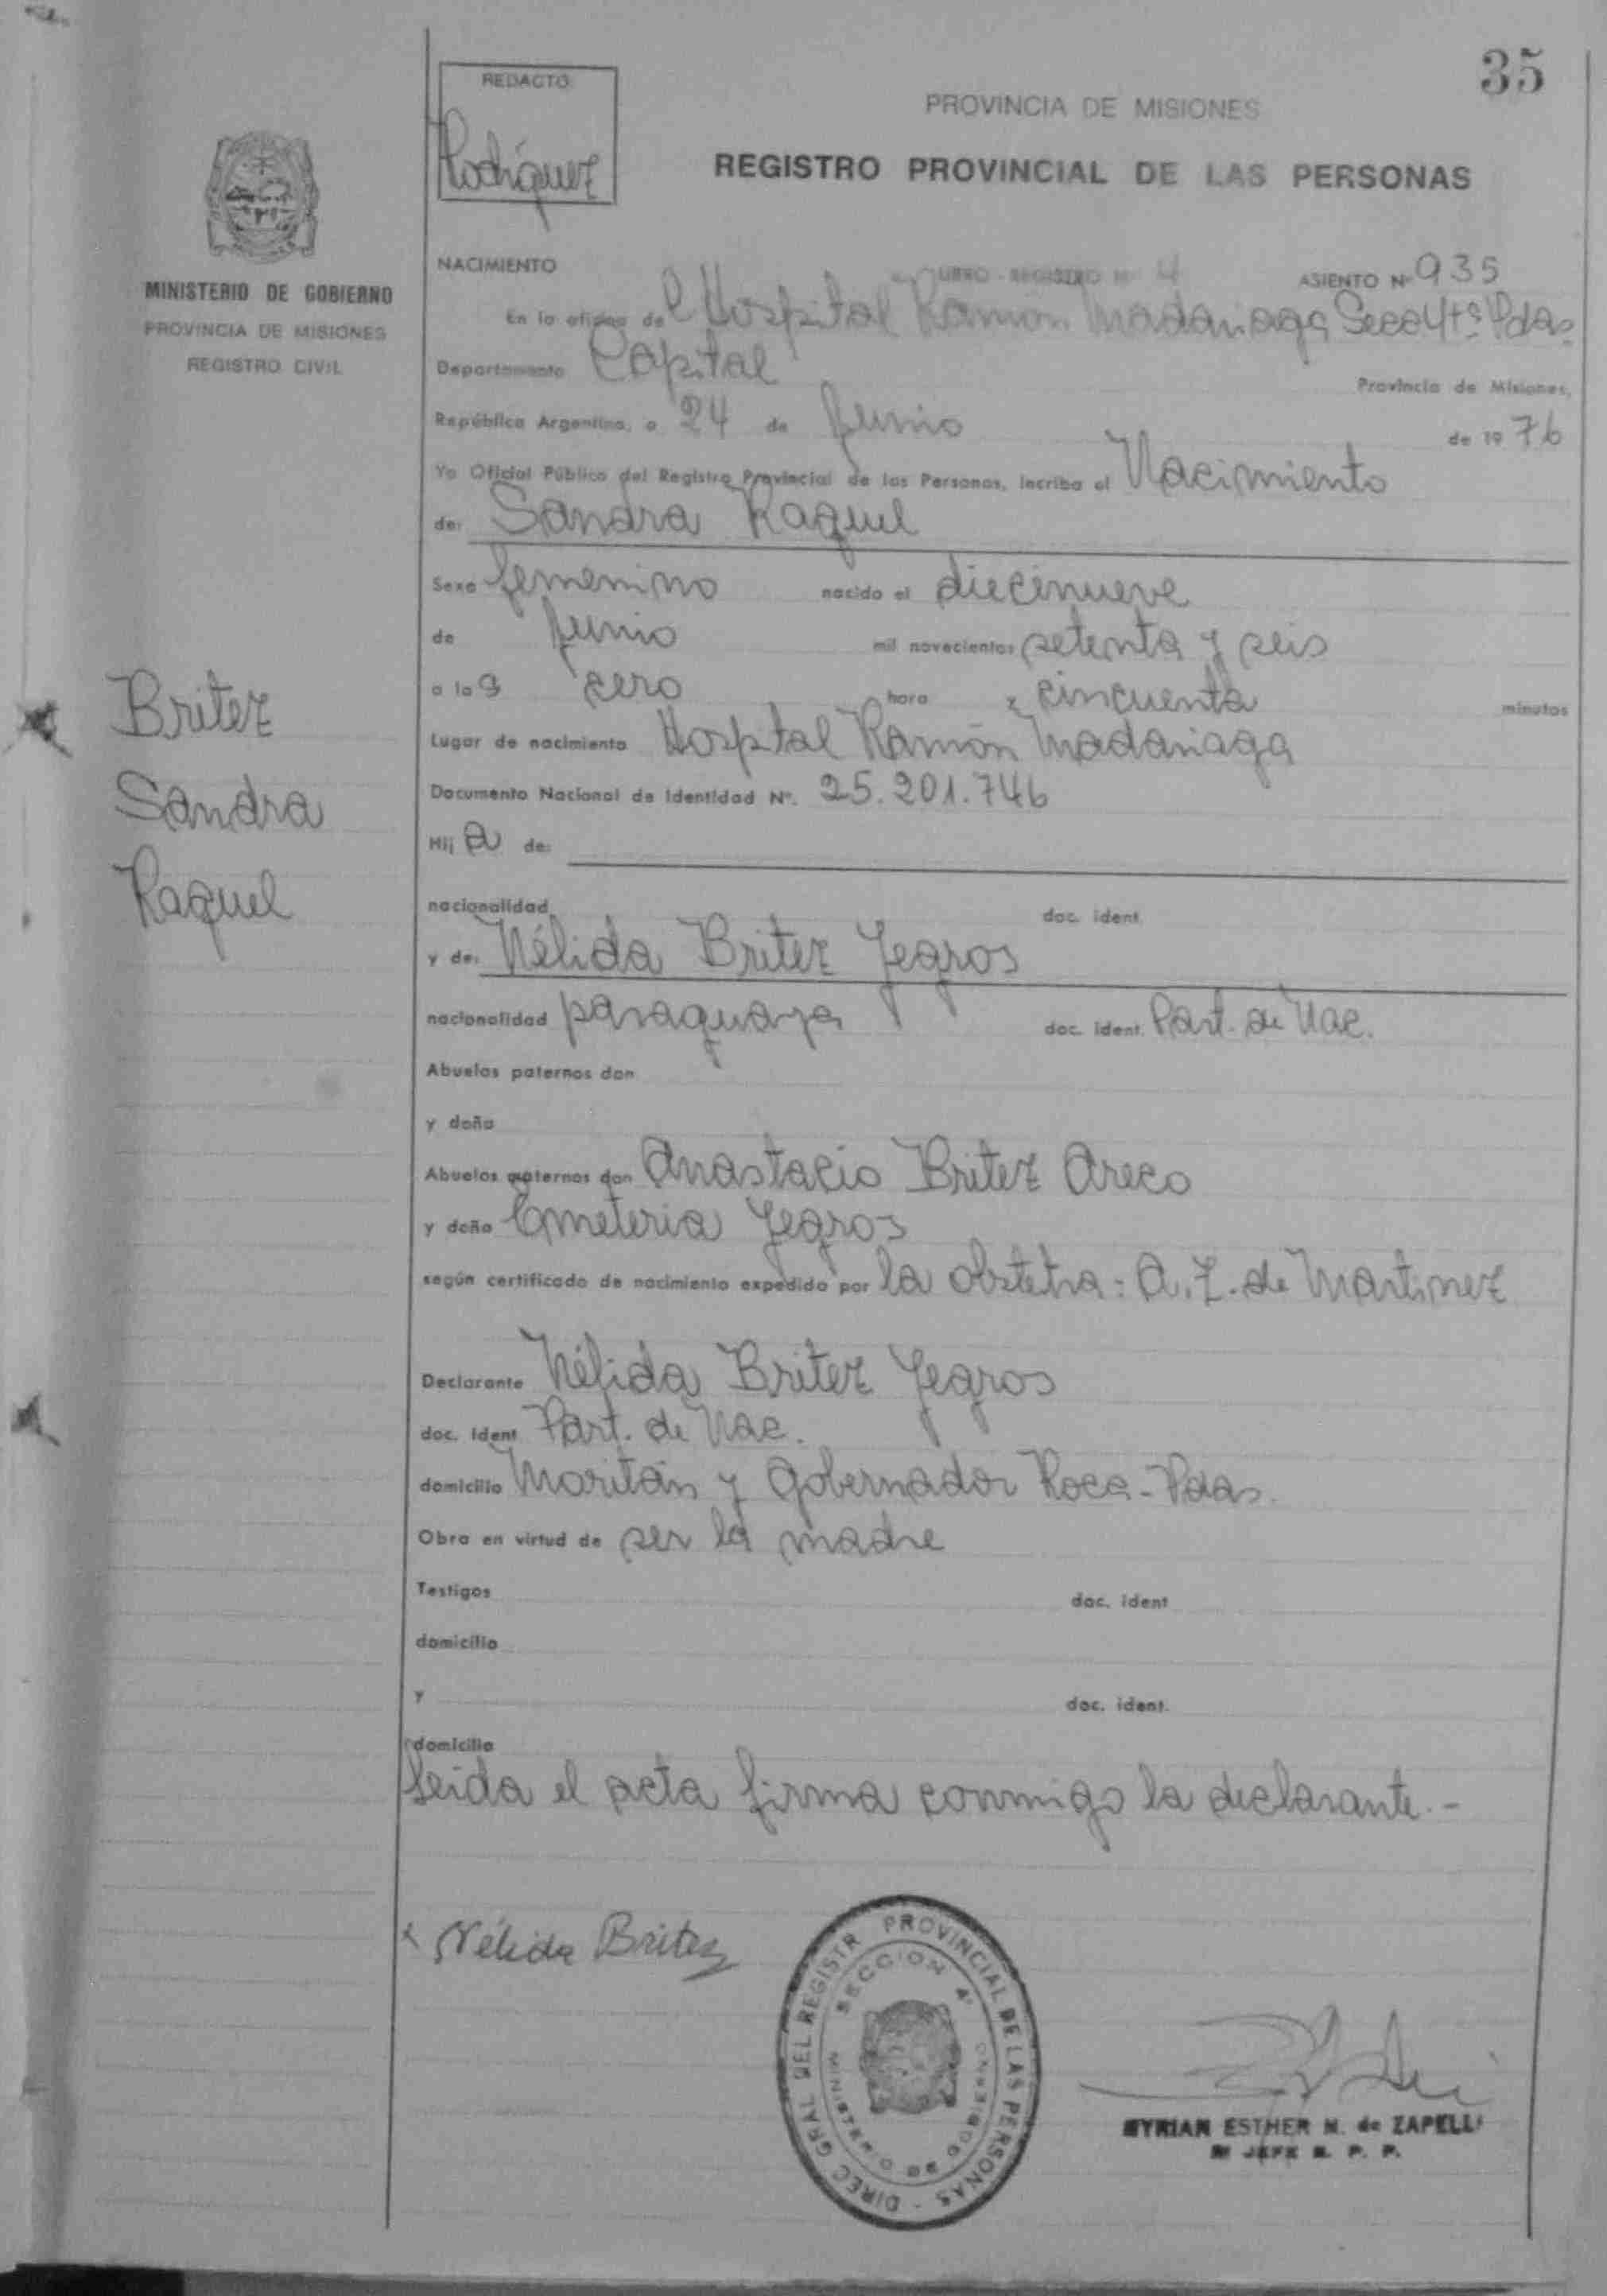 35
REDACTO
Rodríguez
PROVINCIA DE MISIONES
REGISTRO PROVINCIAL DE LAS PERSONAS
MINISTERIO DE GOBIERNO
PROVINCIA DE MISIONES
REGISTRO CIVIL
NACIMIENTO LIBRO - REGISTRO Nº 4 ASIENTO Nº 935
En la oficina de l Hospital Ramón Madariaga Secc 4tª Pdas.
Departamento Capital Provincia de Misiones,
República Argentina, a 24 de Junio de 19 76
Yo Oficial Público del Registro Provincial de las Personas, incribo el Nacimiento
de: Sandra Raquel
Sexo femenino nacido el diecinueve
de Junio mil novecientos setenta y seis
a las cero hora y cincuenta minutos
Lugar de nacimiento Hospital Ramón Madariaga
Documento Nacional de Identidad Nº. 25.201.746
Hij a de:
nacionalidad doc. ident.
y de: Nélida Britez Yegros
nacionalidad paraguaya doc. ident. Part. de Nac.
Abuelos paternos don
y doña
Abuelos maternos don Anastacio Britez Areco
y doña Emeteria Yegros
según certificado de nacimiento expedido por la obstetra: A. Z. de Martinez
Declarante Nélida Britez Yegros
doc. ident. Part. de Nac.
domicilio Moritán y Gobernador Roca - Pdas.
Obra en virtud de ser la madre
Testigos doc. ident
domicilio
y doc. ident.
domicilio
Leida el acta firma conmigo la declarante.-
Britez
Sandra
Raquel
x Nélida Britez
DIREC GRAL DEL REGISTR PROVINCIAL DE LAS PERSONAS
SECCION 4ª
MINISTERIO DE GOBIERNO
MYRIAN ESTHER N. de ZAPELLI
JEFE R. P. P.